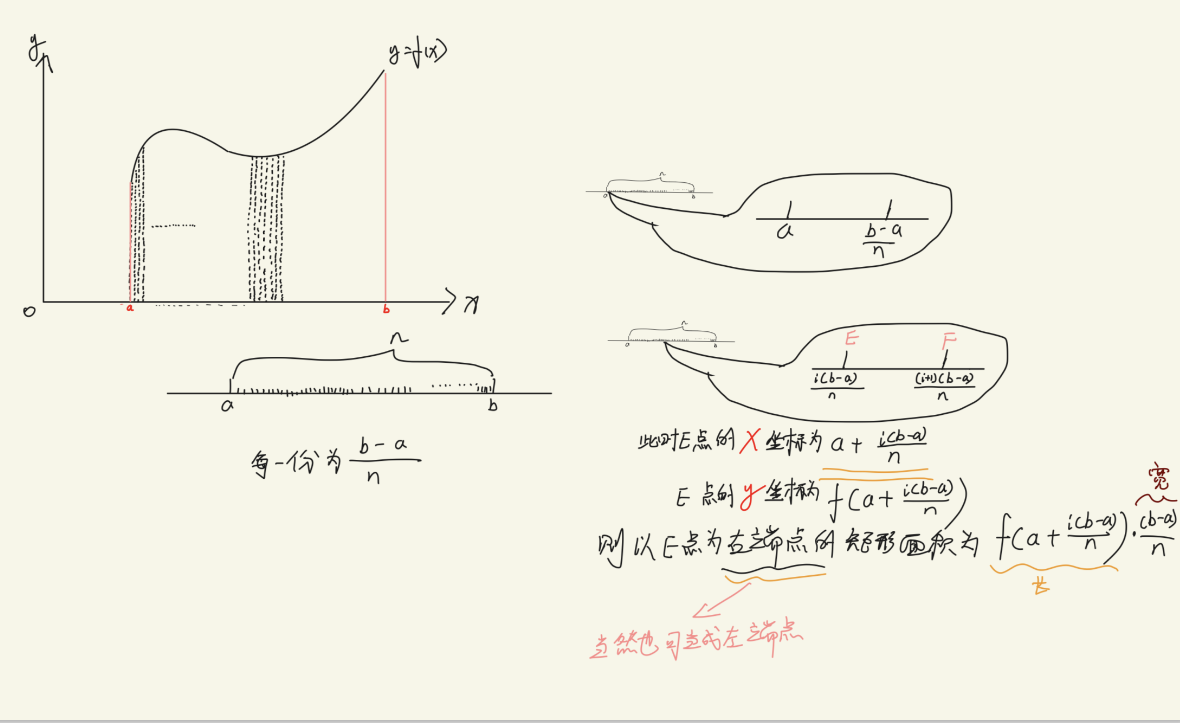 y
y=f(x)
o
a
b
x
n
a
b
每一份为 (b-a)/n
n
a
b
a
(b-a)/n
n
a
b
E
F
i(b-a)/n
(i+1)(b-a)/n
此时E点的 X 坐标为 a + i(b-a)/n
E 点的 y 坐标为 f(a + i(b-a)/n)
宽
则以E点为右端点的矩形面积为 f(a + i(b-a)/n)·(b-a)/n
长
当然也可当成左端点